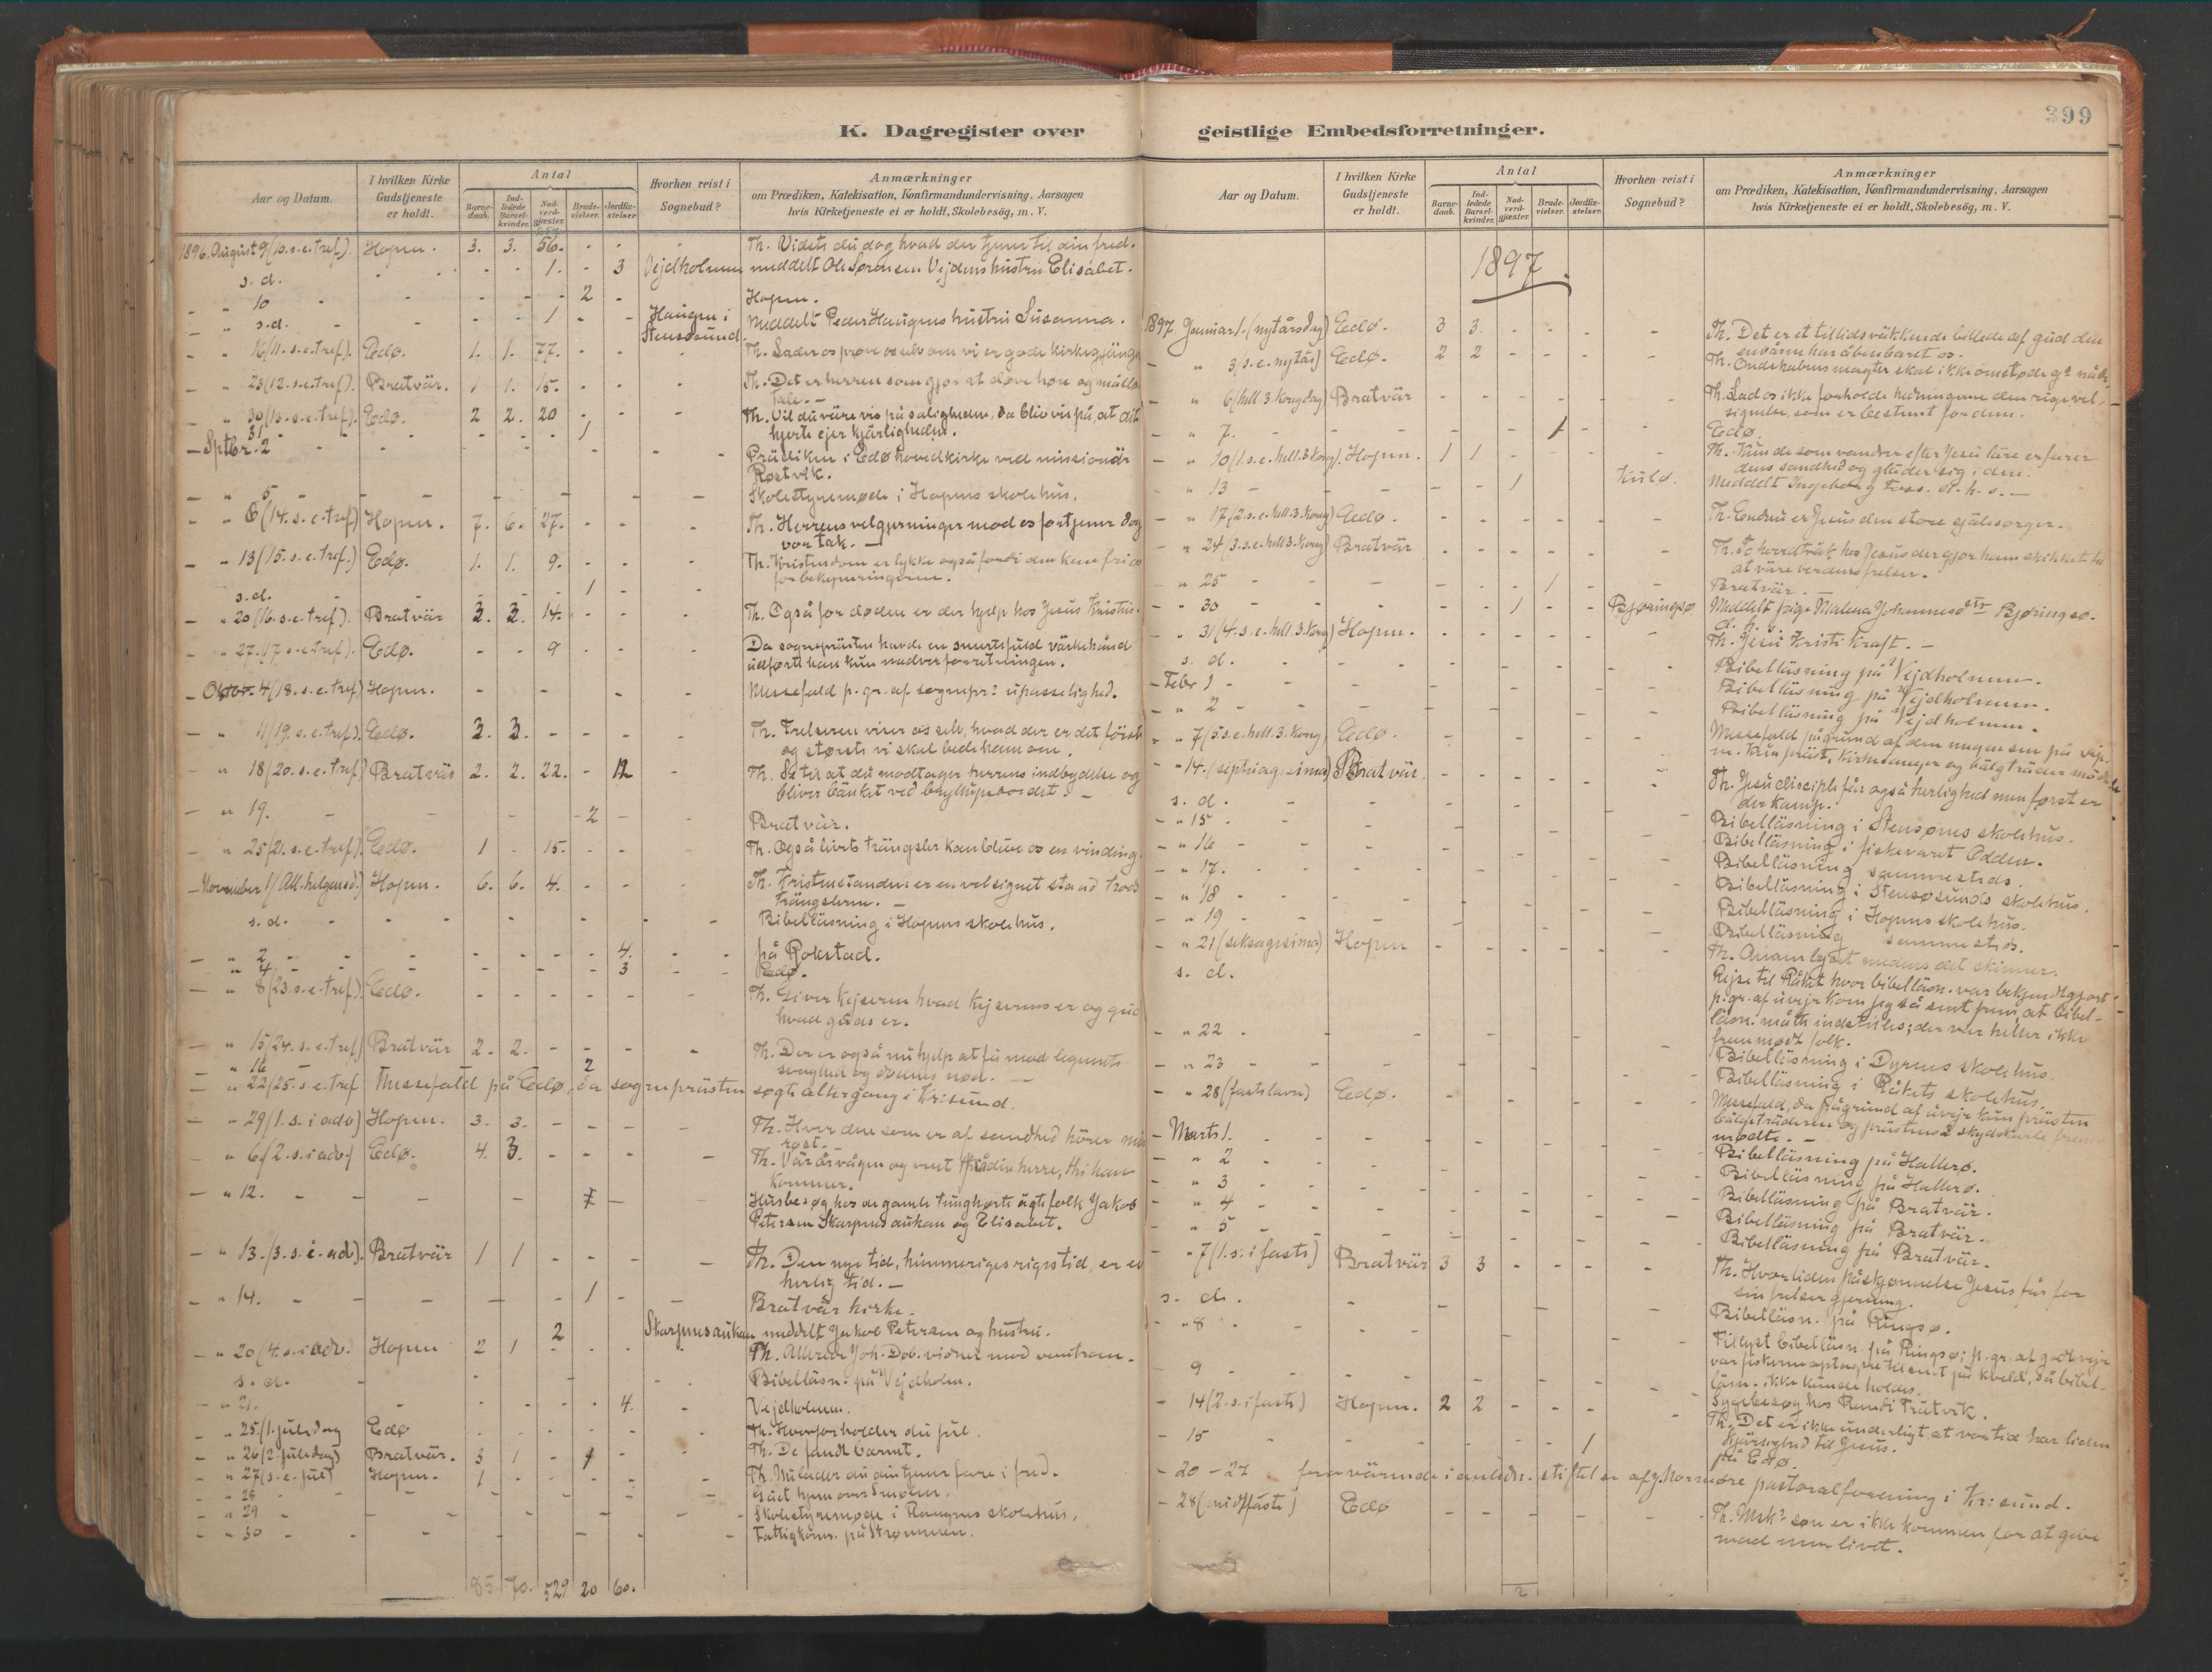 399
K. Dagregister over geistlige Embedsforretninger.
Aar og Datum. I hvilken Kirke Gudstjeneste er holdt. Antal Barne-daab. Ind-ledede Barsel-kvinder. Nad-verd-gjæster. Brude-vielser. Jordfæ-stelser. Hvorhen reist i Sognebud? Anmærkninger om Prædiken, Katekisation, Konfirmandundervisning, Aarsagen hvis Kirketjeneste ei er holdt, Skolebesög, m. V.
1896. August 9 (10. s. e. tref.) Hopen. 3. 3. 56. - - - Th. Vidste du dog hvad der tjener til din fred.
s. d. - - - 1. - 3 Vejdholmen meddelt Ole Sørensen Vejdens hustru Elisabet.
- " 10 - - - - - 2 - Hopen.
- " s.d. - - - - 1 - - Haugen i Stensøsund meddelt Peder Haugens hustru Susanna.
- " 16 (11. s. e. tref.) Edø. 1. 1. 77. - - - Th. Lader os prøve os selv om vi er gode kirkegjænge
- " 23 (12. s. e. tref.) Bratvär. 1 1. 15. - - - Th. Det er herren som gjør at døve høre og målløse
tale. -
- " 30 (13. s. e. tref.) Edø. 2 2. 20 - - - Th. Vil du väre vis på saligheden, da bliv vis på, at dit
hjerte ejer kjärligheden.
31 - - - - - 1
- Sptbr. 2 - - - - - - Prädiken i Edø hovedkirke ved missionär
Røstvik.
- " 5 - - - - - - - Skolestyremøde i Hopens skolehus.
- " 6 (14. s. e. tref) Hopen. 7. 6. 27. - - - Th. Herrens velgjerninger mod os fortjener dog
vor tak. -
- " 13 (15. s. e. tref.) Edø. 1. 1. 9. - - - Th. Kristendom er lykke også fordi den kan fri os
for bekymringerne.
s.d. - - - - 1 - -
- " 20 (16. s. e. tref) Bratvär 3. 3. 14. - - - Th. Også for døden er der hjelp hos Jesus Kristus.
- " 27. (17 s. e. tref). Edø. - - 9 - - - Da sogneprästen havde en smertefuld värkehånd
udførte han kun nadverforretningen.
- Oktbr. 4 (18. s. e. tref) Hopen. - - - - - Messefald p. gr. af sognepr: upasselighed.
- " 11 (19. s. e. tref). Edø. 3. 3. - - - - Th. Frelseren viser os selv, hvad der er det første
og største vi skal bede ham om.
- " 18 (20. s. e. tref) Bratvär 2. 2. 22. - 12 - Th. Se til at du modtager herrens indbydelse og
bliver bänket ved bryllupsbordet. -
- " 19. - - - - 2 - - Bratvär.
- " 25 (21. s. e. tref). Edø. 1 - 15. - - - Th. Også livets trängsler kan blive os en vinding.
- November 1 (All. helgensd.) Hopen. 6. 6. 4. - - - Th. Kristenstanden er en velsignet stand trods
trängslerne. -
s. d. - - - - - - - Bibelläsning i Hopens skolehus.
- " 2 - - - - - - 4. - - på Rokstad.
- " 4 - - - - - - 3 - - Edø.
- " 8 (23. s. e. tref) Edø. - - - - - - Th. Giver kejseren hvad kejserens er og gud
hvad guds er.
- " 15 (24. s. e. tref) Bratvär 2. 2. - - - - Th. Der er også nu hjelp at få mod legemets
svaghed og dødens nød. -
- " 16 2
- " 22 (25. s. e. tref Messefald på Edø, da sogneprästen søgte altergang i Krisund.
- " 29 (1. s. i adv) Hopen. 3. 3. - - - - Th. Hver den som er af sandhed hører min
røst. -
- " 6. (2. s. i adv.) Edø. 4. 3. - - - - Th. Vär årvågen og vent på din herre, thi han
kommer.
- " 12. - - - - 1 - Husbesøg hos de gamle tunghørte ägtefolk Jakob
Petersen Skarpnesaukan og Elisabet.
- " 13. (3. s. i. ad). Bratvär 1 1 - - - - Th. Den nye tid, himmeriges riges tid, er en
herlig tid. -
- " 14. - - - - - 1 - - Bratvär kirke.
2 Skarpnesaukan meddelt Jakob Petersen og hustru.
- " 20 (4. s. i adv.) Hopen 2 1 - - - Th. Allerede Joh. Døb. vidner mod vantroen.
s. d. - - - - - - Bibelläsn. på Vejdholm.
- " 21. - - - - 4. - Vejdholmen.
" 25 (1. juledag Edø - - - - - - Th. Hvorfor holder du jul.
- " 26 (2. juledag) Bratvär. 3 1 - 1 - Th. De fandt barnet.
- " 27 (s. e. jul) Hopen. 1 - - - - - Th. Nu lader du din tjener fare i fred.
- " 28 - - - - - - - Gået hjem over Smølen.
- " 29 - - - - - - - Skolestyremøde i Haugens skolehus.
- " 30 - - - - - - - Fattigkom. på Strømmen.
85. 70. 529 20 60.
Aar og Datum. I hvilken Kirke Gudstjeneste er holdt. Antal Barne-daab. Ind-ledede Barsel-kvinder. Nad-verd-gjæster. Brude-vielser. Jordfæ-stelser. Hvorhen reist i Sognebud? Anmærkninger om Prædiken, Katekisation, Konfirmandundervisning, Aarsagen hvis Kirketjeneste ei er holdt, Skolebesög, m. V.
1897
1897 Januar 1. (nytårsdag) Edø. 3 3. - - - - Th. Det er et tillidsväkkende billede af gud den
enbårne har åbenbaret os.
" 3 (s. e. nytår) Edø. 2 2 - - - - Th. Ondskabens magter skal ikke omstøde g: nåde.
- " 6 (hell. 3. kong. dag) Bratvär - - - - - Th. Lad os ikke forholde hedningerne den rige vel-
signelse, som er bestemt for dem.
- " 7. - - - - - 1 - - Edø.
- " 10 (1. s. e. hell. 3. kong). Hopen. 1 1 - - - - Th. Kun de som vandrer efter Jesu läre erfarer
dens sandhed og gläder sig i den.
" 13 - - - - 1 - - Kulø. Meddelt Ingeborg Foss. d. h. s. -
- " 17 (2. s. e. hell. 3. kong) Edø. - - - - - - Th. Endnu er Jesus den store själesørger.
- " 24 (3. s. e. hell 3. kong) Bratvär - - - - - - Th. To hovedträk hos Jesus der gjør ham skikket til
at väre verdens frelser.
" 25 - - - - - 1 - - Bratvär. -
- " 30 - - - - 1 - - Bjøringsø Meddelt pige Malena Johannesdtr Bjøringsø.
d. h.
- " 31 (4. s. e. hell. 3. kong) Hopen. - - - - - - Th. Jesu Kristi kraft. -
s. d. - - - - - - Bibelläsning på Vejdholmen.
- Febr 1 - - - - - - Bibelläsning på Vejdholmen.
- " 2 - - - - - - Bibelläsning på Vejdholmen.
- " 7 (5. s. e. hell. 3. kong) Edø. - - - - - - Messefald på grund af den megen sne på veje-
ne. Kun präst, kirkesanger og bälgträder mødte
- " 14. (septuagesima) Bratvär. - - - - - - Th. Jesu disciple får også herlighed men først er
der kamp.
s. d. - - - - - - Bibelläsning i Stensøens skolehus.
- " 15 - - - - - - Bibelläsning i fiskeväret Odden.
- " 16 - - - - - - Bibelläsning sammesteds.
- " 17. - - - - - - Bibelläsning i Stensøsunds skolehus.
" 18 - - - - - - Bibelläsning i Hopens skolehus.
- " 19 - - - - - - Bibelläsning sammesteds.
- " 21 (seksagesima) Hopen - - - - - - Th. Anam lyset medens det skinner.
s. d. Rejse til Råket hvor bibelläsn. var bekjendtgjort.
p. gr. af uvejr kom jeg så sent frem, at bibel-
läsn. måtte indstilles; der var heller ikke
fremmødt folk.
- " 22 - - - - - - Bibelläsning i Dyrnes skolehus.
- " 23 - - - - - - Bibelläsning i Råkets skolehus.
- " 28 (fastelavn) Edø. - - - - - - Messefald, da på grund af uvejr kun prästen
bälgträderen og prästens 2 skydskarle frem-
mødte. -
- Marts 1. - - - - - - Bibelläsning på Hallerø.
- " 2 - - - - - - Bibelläsning på Hallerø.
- " 3 - - - - - - Bibelläsning på Bratvär.
- " 4 - - - - - - Bibelläsning på Bratvär.
- " 5 - - - - - - Bibelläsning på Bratvär.
- " 7 (1. s. i faste) Bratvär 3 3 - - - - Th. Hvor liden påskjønnelse Jesus får for
sin frelsergjerning.
s. d. - - - - - - Bibelläsn. på Ringsø.
- " 8 - - - - - - Tillyst bibelläsn. på Ringsø; p. gr. af godt vejr
var fiskerne optagne til sent på kveld, så bibel-
läsn. ikke kunde holdes.
- 9 - - - - - - Sygebesøg hos Rundi Trätvik.
- 14 (2. s. i faste) Hopen. 2 2 - - - - Th. Det er ikke underligt at vor tid har liden
kjärlighed til Jesus.
- 15 - - - - - 1 - på Edø.
- 20 - 27 fraværende i anledn. stiftelse af Normøre pastoralforening i Krisund.
- 28 (midfaste) Edø - - - - - - Th. Msk: søn er ikke kommen for at give
mad men livet.
2